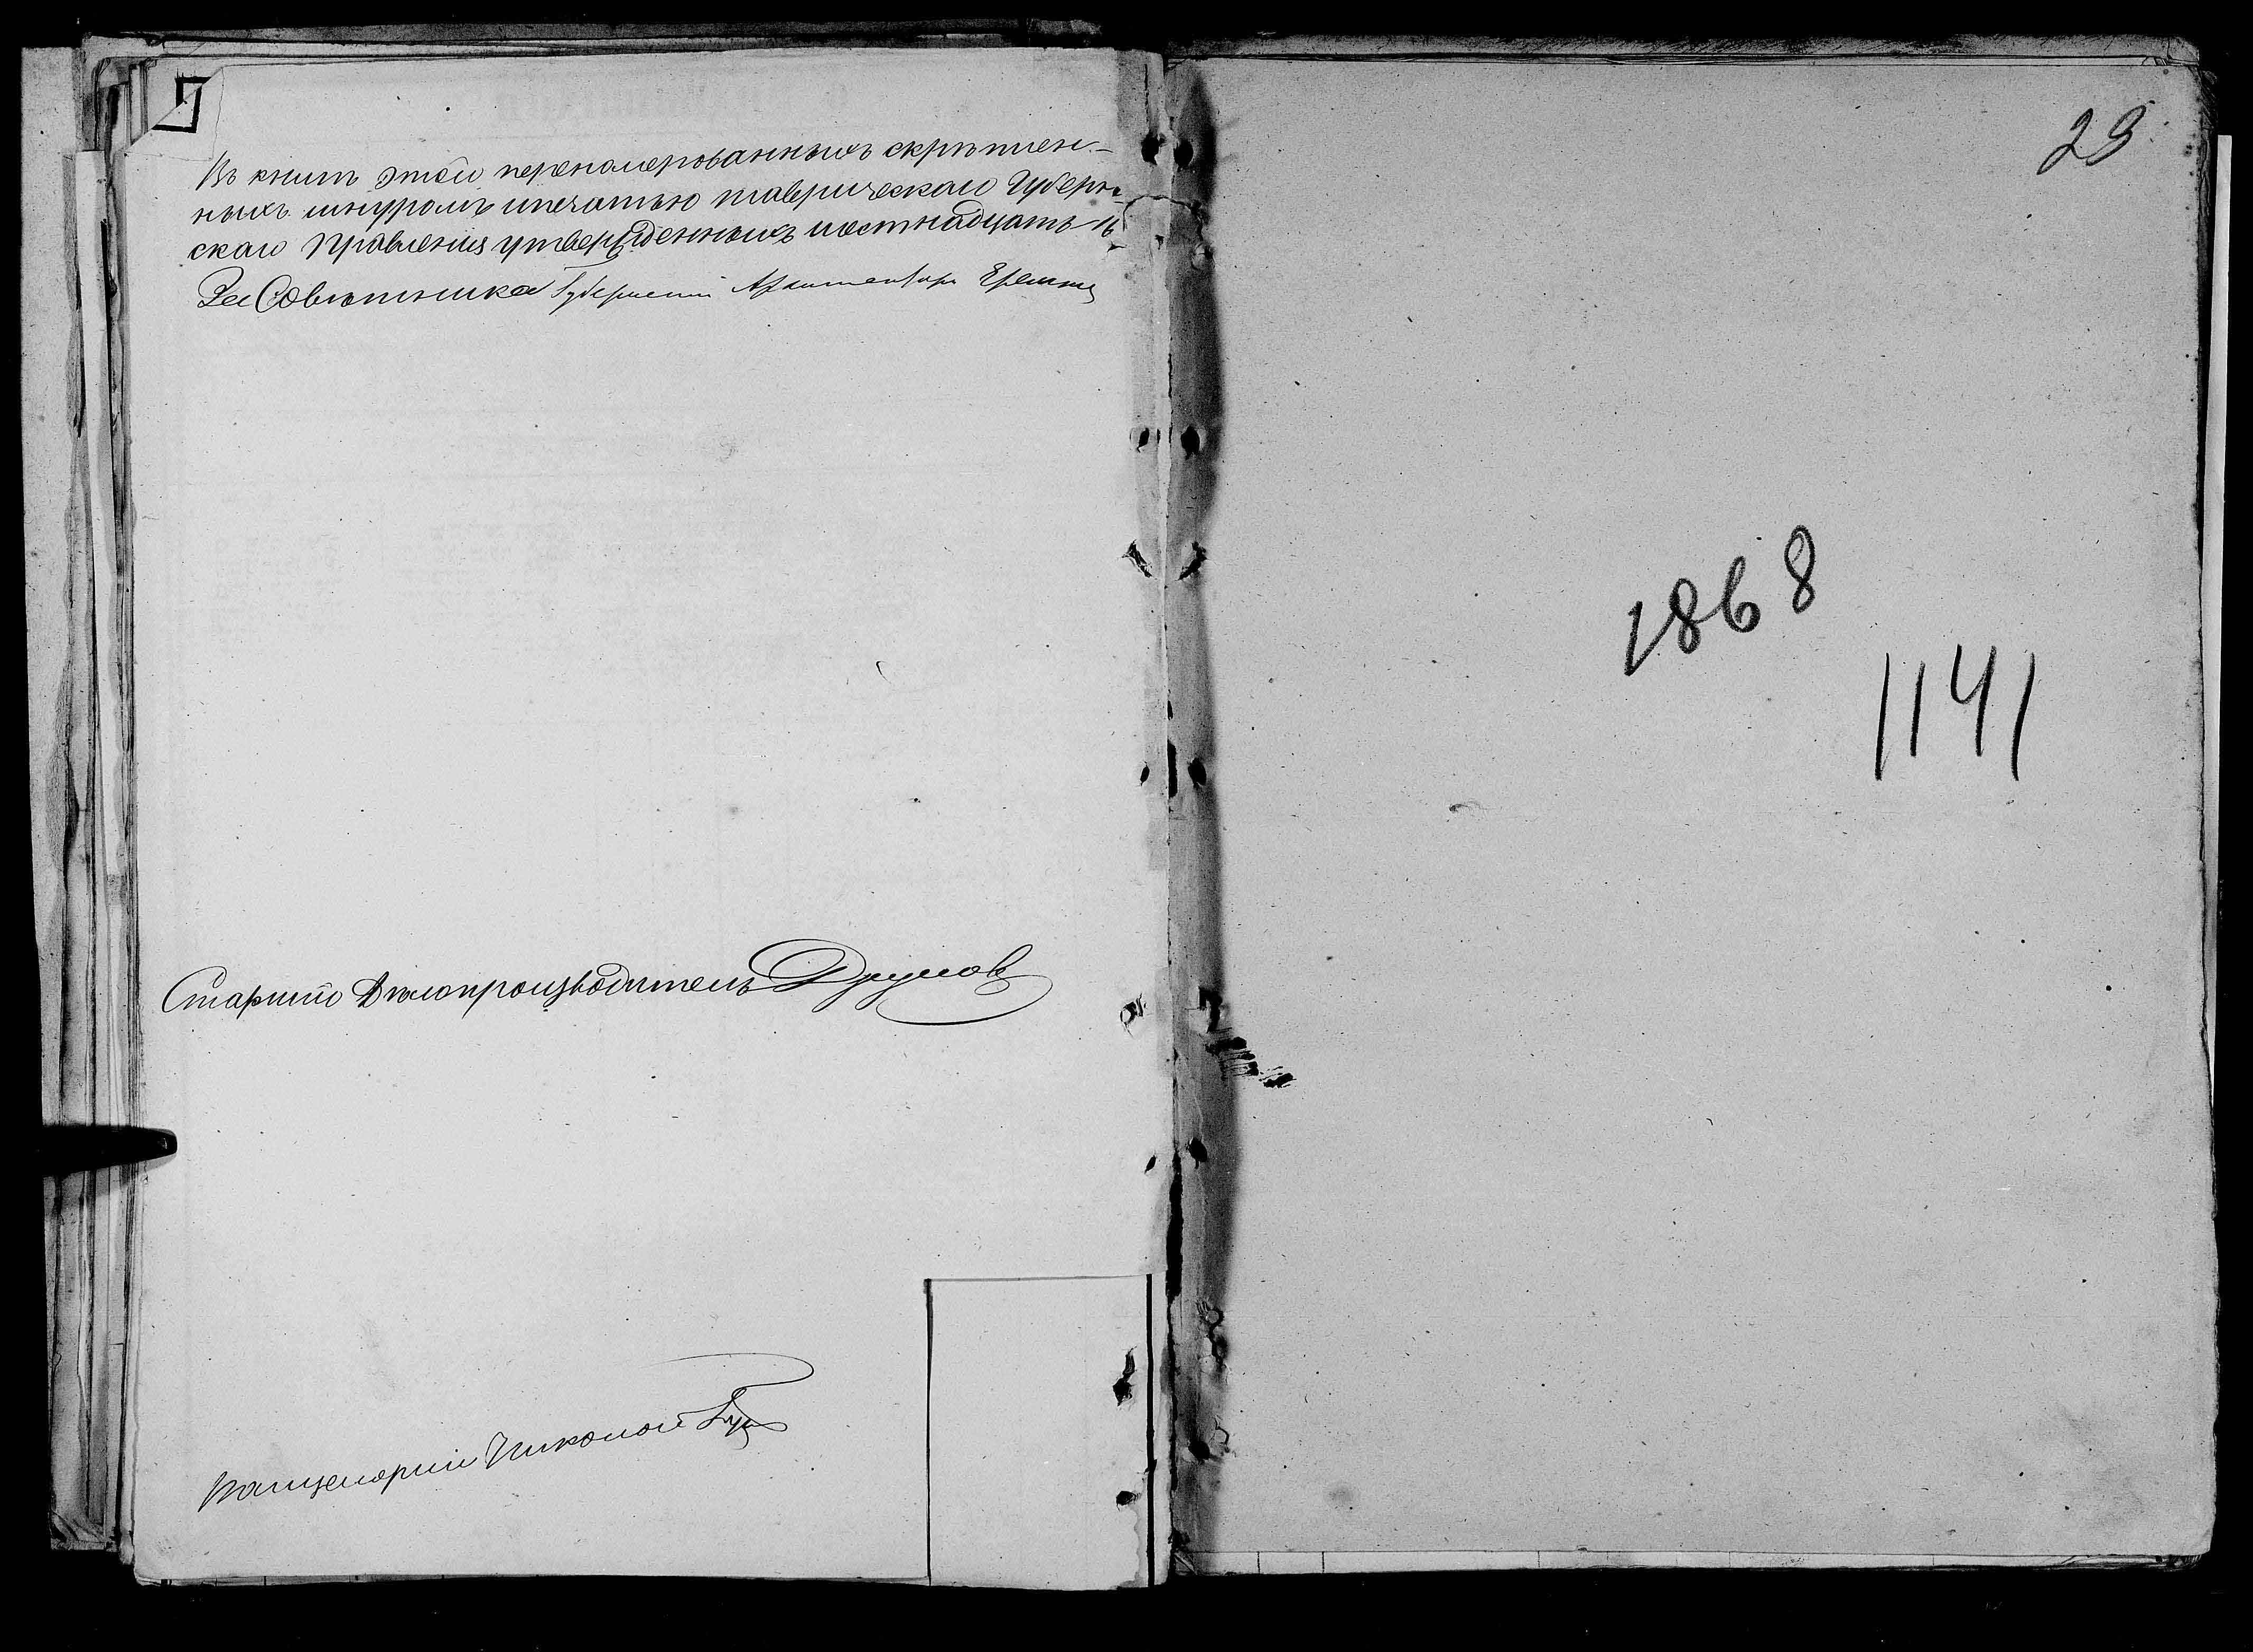 Въ книгѣ этой перенумерованныхъ скрѣплен-
ныхъ шнуромъ и печатью таврическаго Губерн-
скаго Правленія утвержденныхъ шестнадцать 16
За Совѣтника Губернскій Архитекторъ
Старшій Дѣлопроизводитель
Канцелярій
29
1868
1141